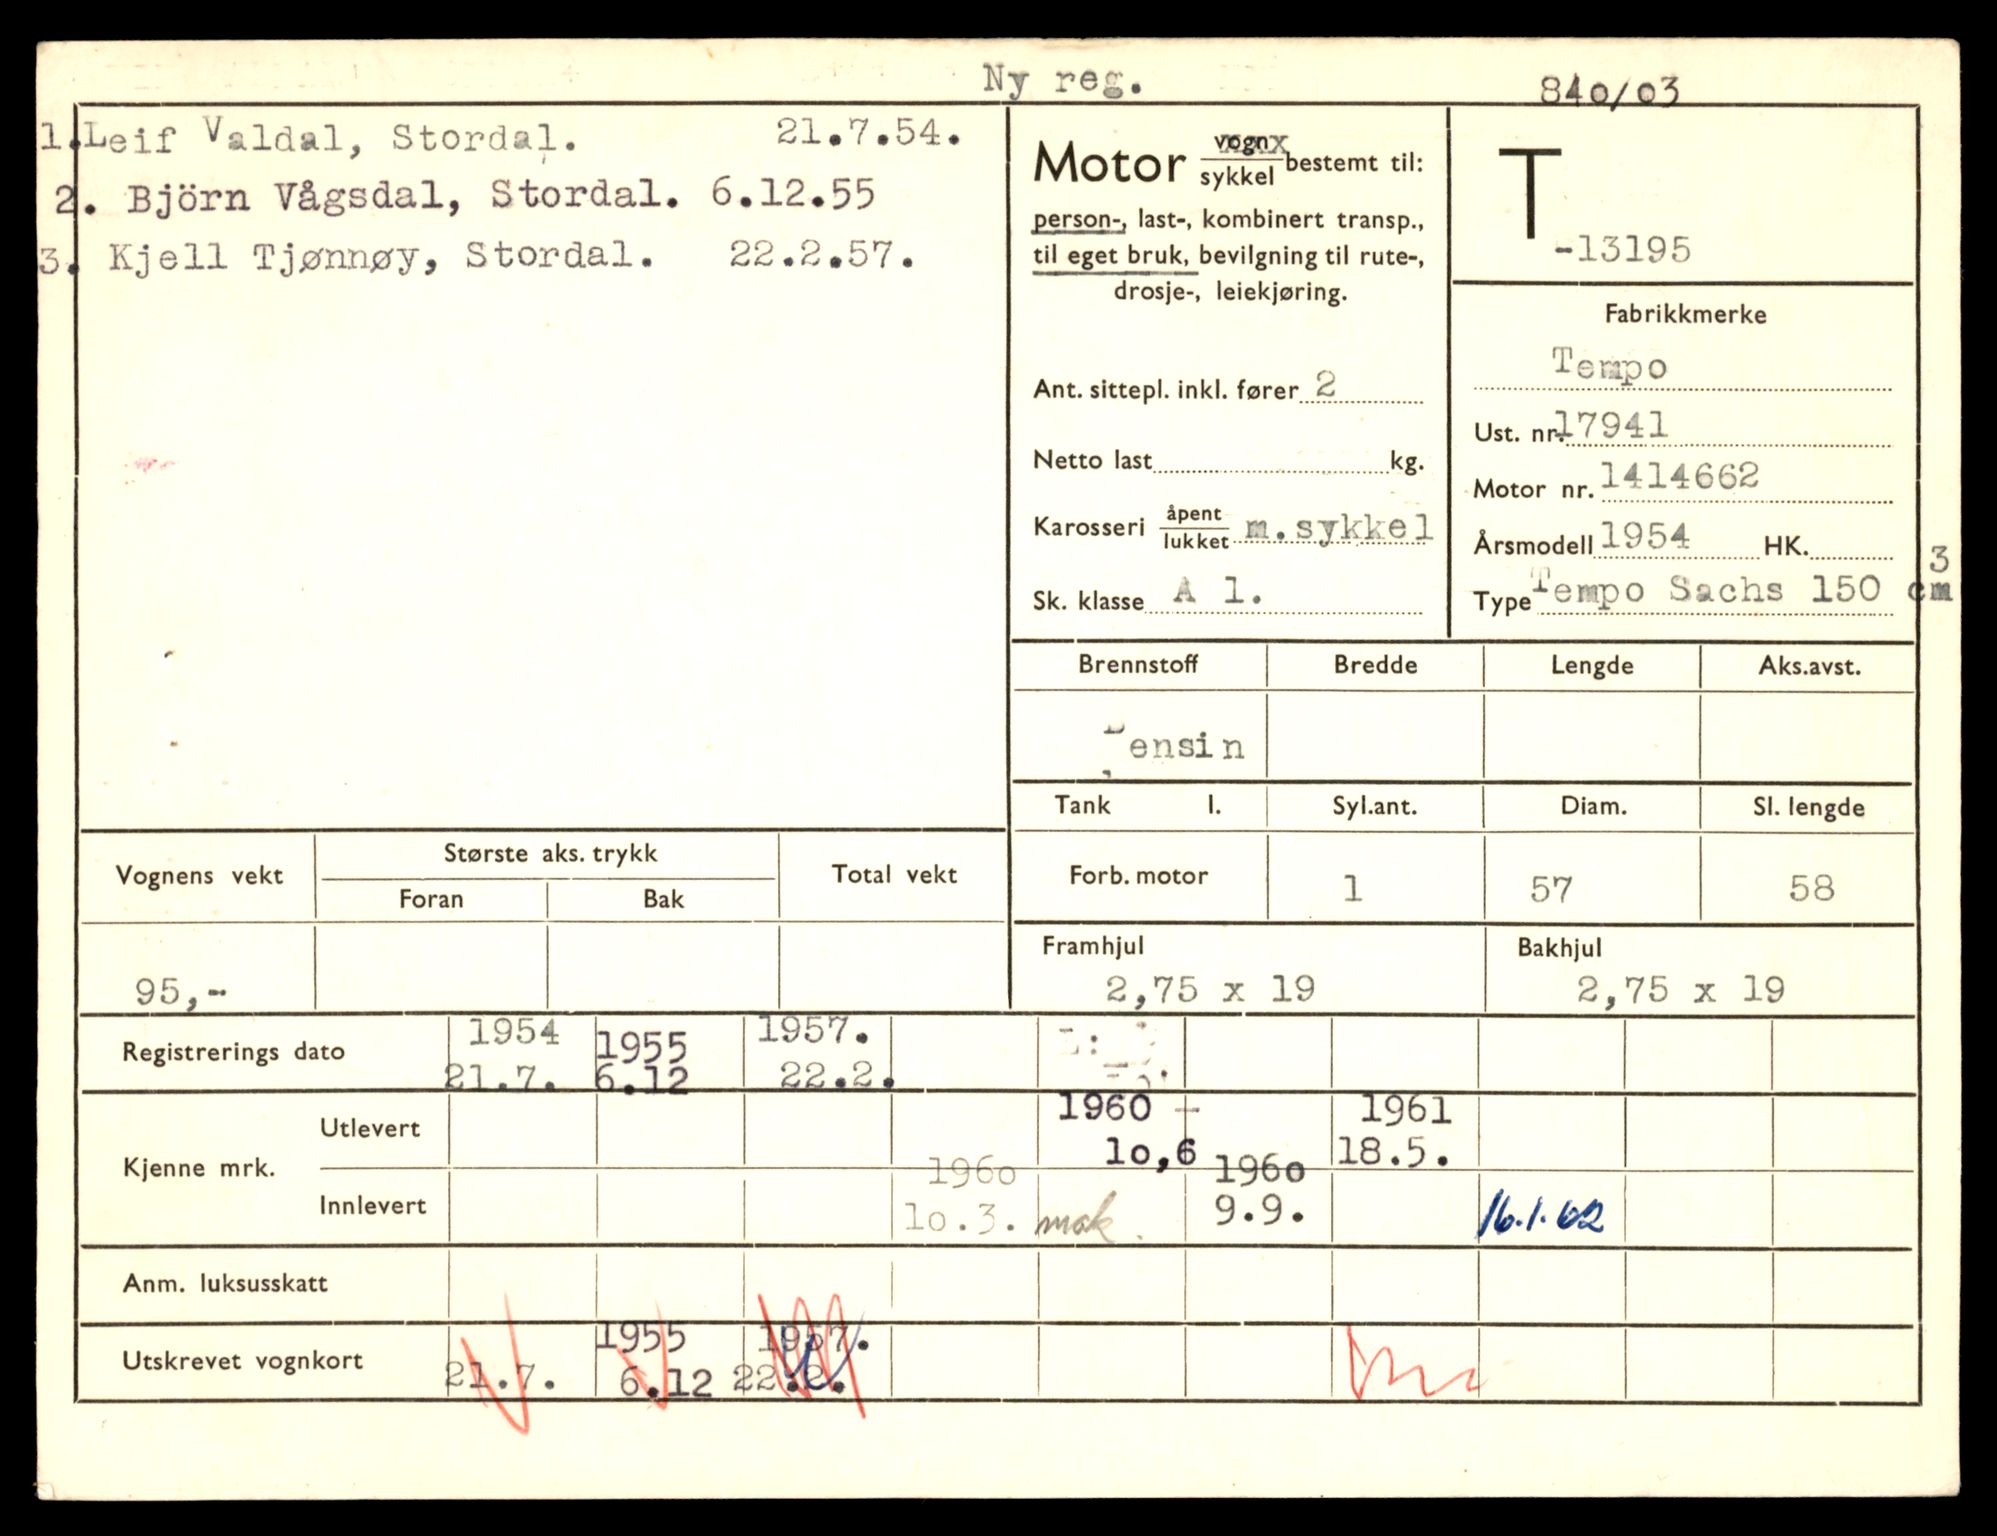 Ny reg.
840/03
1. Leif Valdal, Stordal. 21.7.54.
2. Björn Vågsdal, Stordal. 6.12.55
3. Kjell Tjønnøy, Stordal. 22.2.57.
Motor vogn/sykkel bestemt til:
person-, last-, kombinert transp.,
til eget bruk, bevilgning til rute-,
drosje-, leiekjøring.
Ant. sittepl. inkl. fører 2
Netto last kg.
Karosseri åpent/lukket m.sykkel
Sk. klasse A 1.
T
-13195
Fabrikkmerke
Tempo
Ust. nr. 17941
Motor nr. 1414662
Årsmodell 1954 HK.
Type Tempo Sachs 150 cm3
Brennstoff Bredde Lengde Aks.avst.
Bensin
Tank l. Syl.ant. Diam. Sl. lengde
Forb. motor 1 57 58
Framhjul Bakhjul
2,75 x 19 2,75 x 19
Vognens vekt Største aks. trykk Total vekt
Foran Bak
95,-
Registrerings dato 1954 1955 1957.
21.7. 6.12 22.2.
Kjenne mrk.
Utlevert 1960 - 1961
10,6 18.5.
Innlevert 1960 1960
10.3. mak. 9.9. 16.1.62
Anm. luksusskatt
Utskrevet vognkort 1955 1957.
21.7. 6.12 22.2.